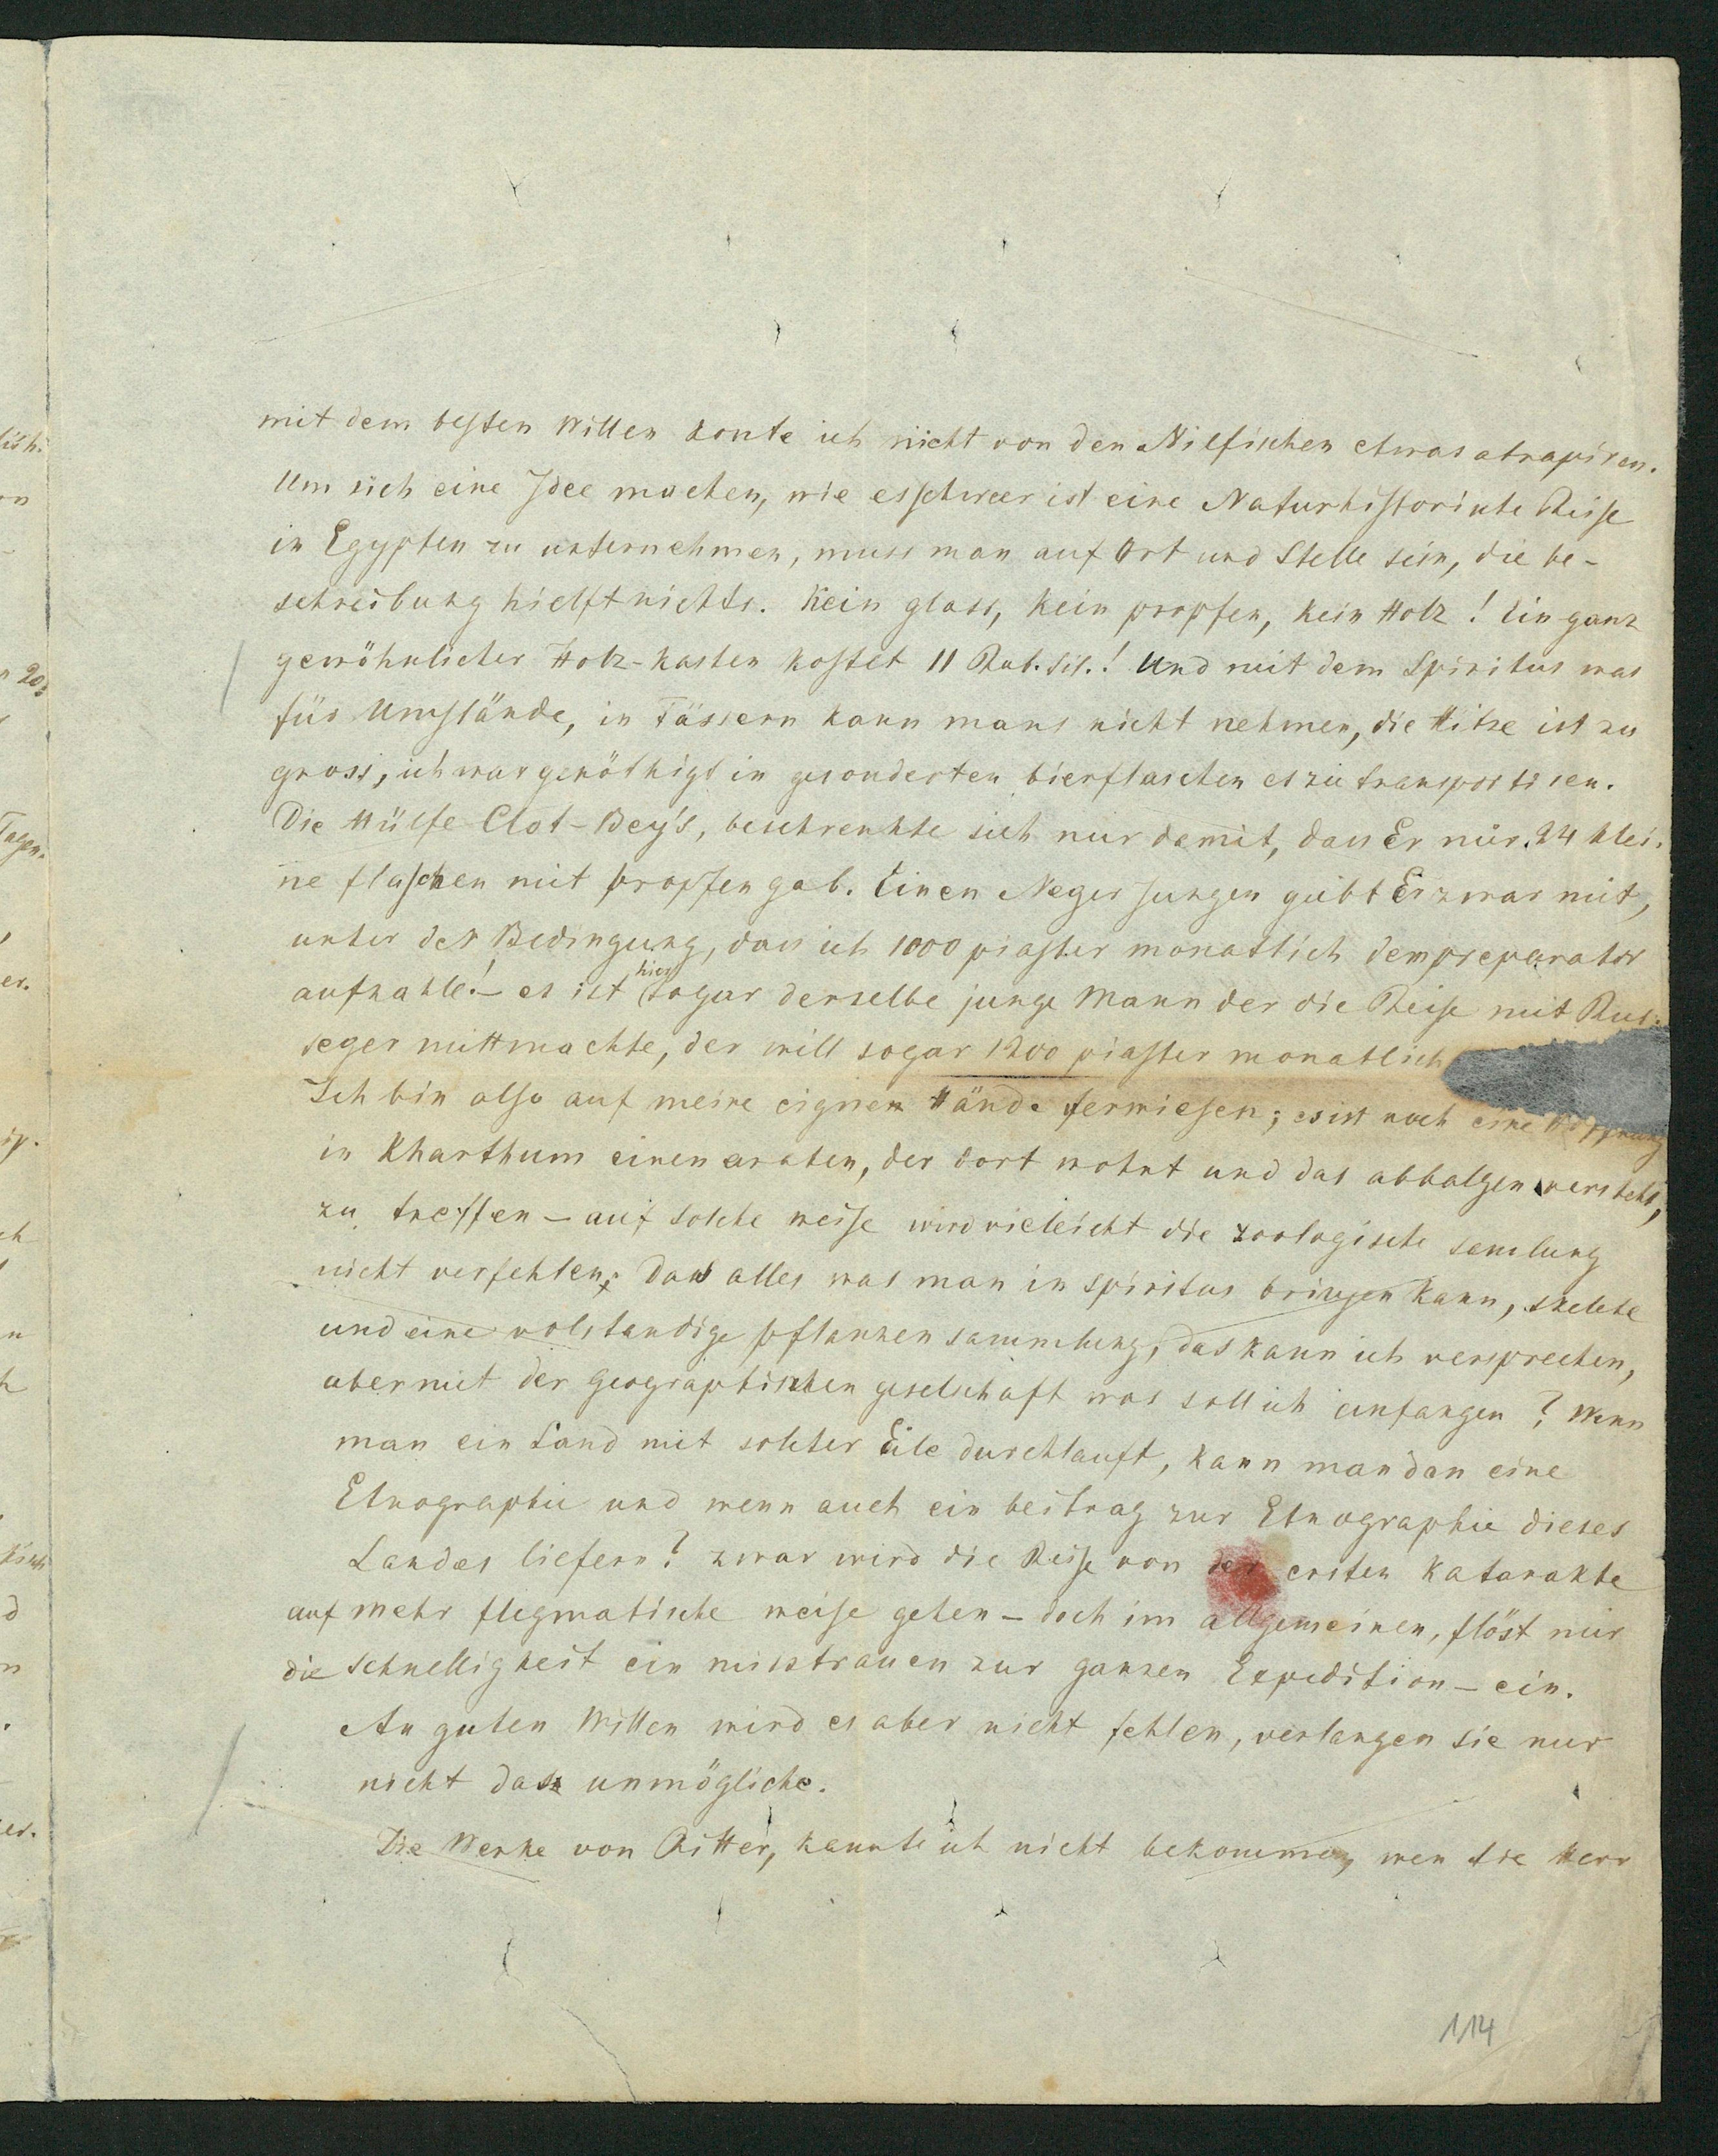 mit dem besten Willen konte ich nicht von den Nilfischen etwas atrapiren.
Um sich eine Idee machen, wie es schweer ist eine Naturhistorische Reise
in Egypten zu unternehmen, muss man auf Ort und Stelle sein, die be-
schreibung hielft nichts. Kein glass, kein propfen, kein Holz! Ein ganz
gewöhnlicher Holz-kasten kostet 11 Rub. Sil.! Und mit dem Spiritus was
für Umstände, in Fässern kann mans nicht nehmen, die Hitze ist zu
gross, ich war genöthigt in gesonderten bierflaschen es zu transportiren.
Die Hülfe Clot-Bey's, beschrenkte sich nur damit, dass Er nur 24 klei-
ne flaschen mit propfen gab. Einen Neger jungen giebt Er zwar mit,
unter der Bedingung, dass ich 1000 piaster monatlich dem preparator
aufzahle! – es ist hier sogar derselbe junge Mann der die Reise mit Rus-
seger mittmachte, der will sogar 1200 piaster monatlich
Ich bin also auf meine eignen Hände ferwiesen; es ist noch eine Hoffnung
in Kharthum einen araben, der dort wohnt und das abbalgen versteht,
zu treffen – auf solche weise wird vieleicht die zoologische samlung
nicht verfehlen; das alles was man in spiritus bringen kann, skelete
und eine volstandige pflanzen sammlung, das kann ich versprechen,
aber mit der Geographischen geselschaft was soll ich anfangen? Wenn
man ein Land mit solcher Eile durchlauft, kann man dan eine
Etnographie und wenn auch ein beitrag zur Etnographie dieses
Landes liefern? zwar wird die Reise von der ersten Katarakte
auf mehr flegmatische weise gehen – doch im allgemeinen, flöst mir
die Schnelligkeit ein misstrauen zur ganzen Expedition – ein.
An guten Willen wird es aber nicht fehlen, verlangen sie nur
nicht das unmögliche.
Die Werke von Ritter, kannte ich nicht bekommen, wen sie Herr
114